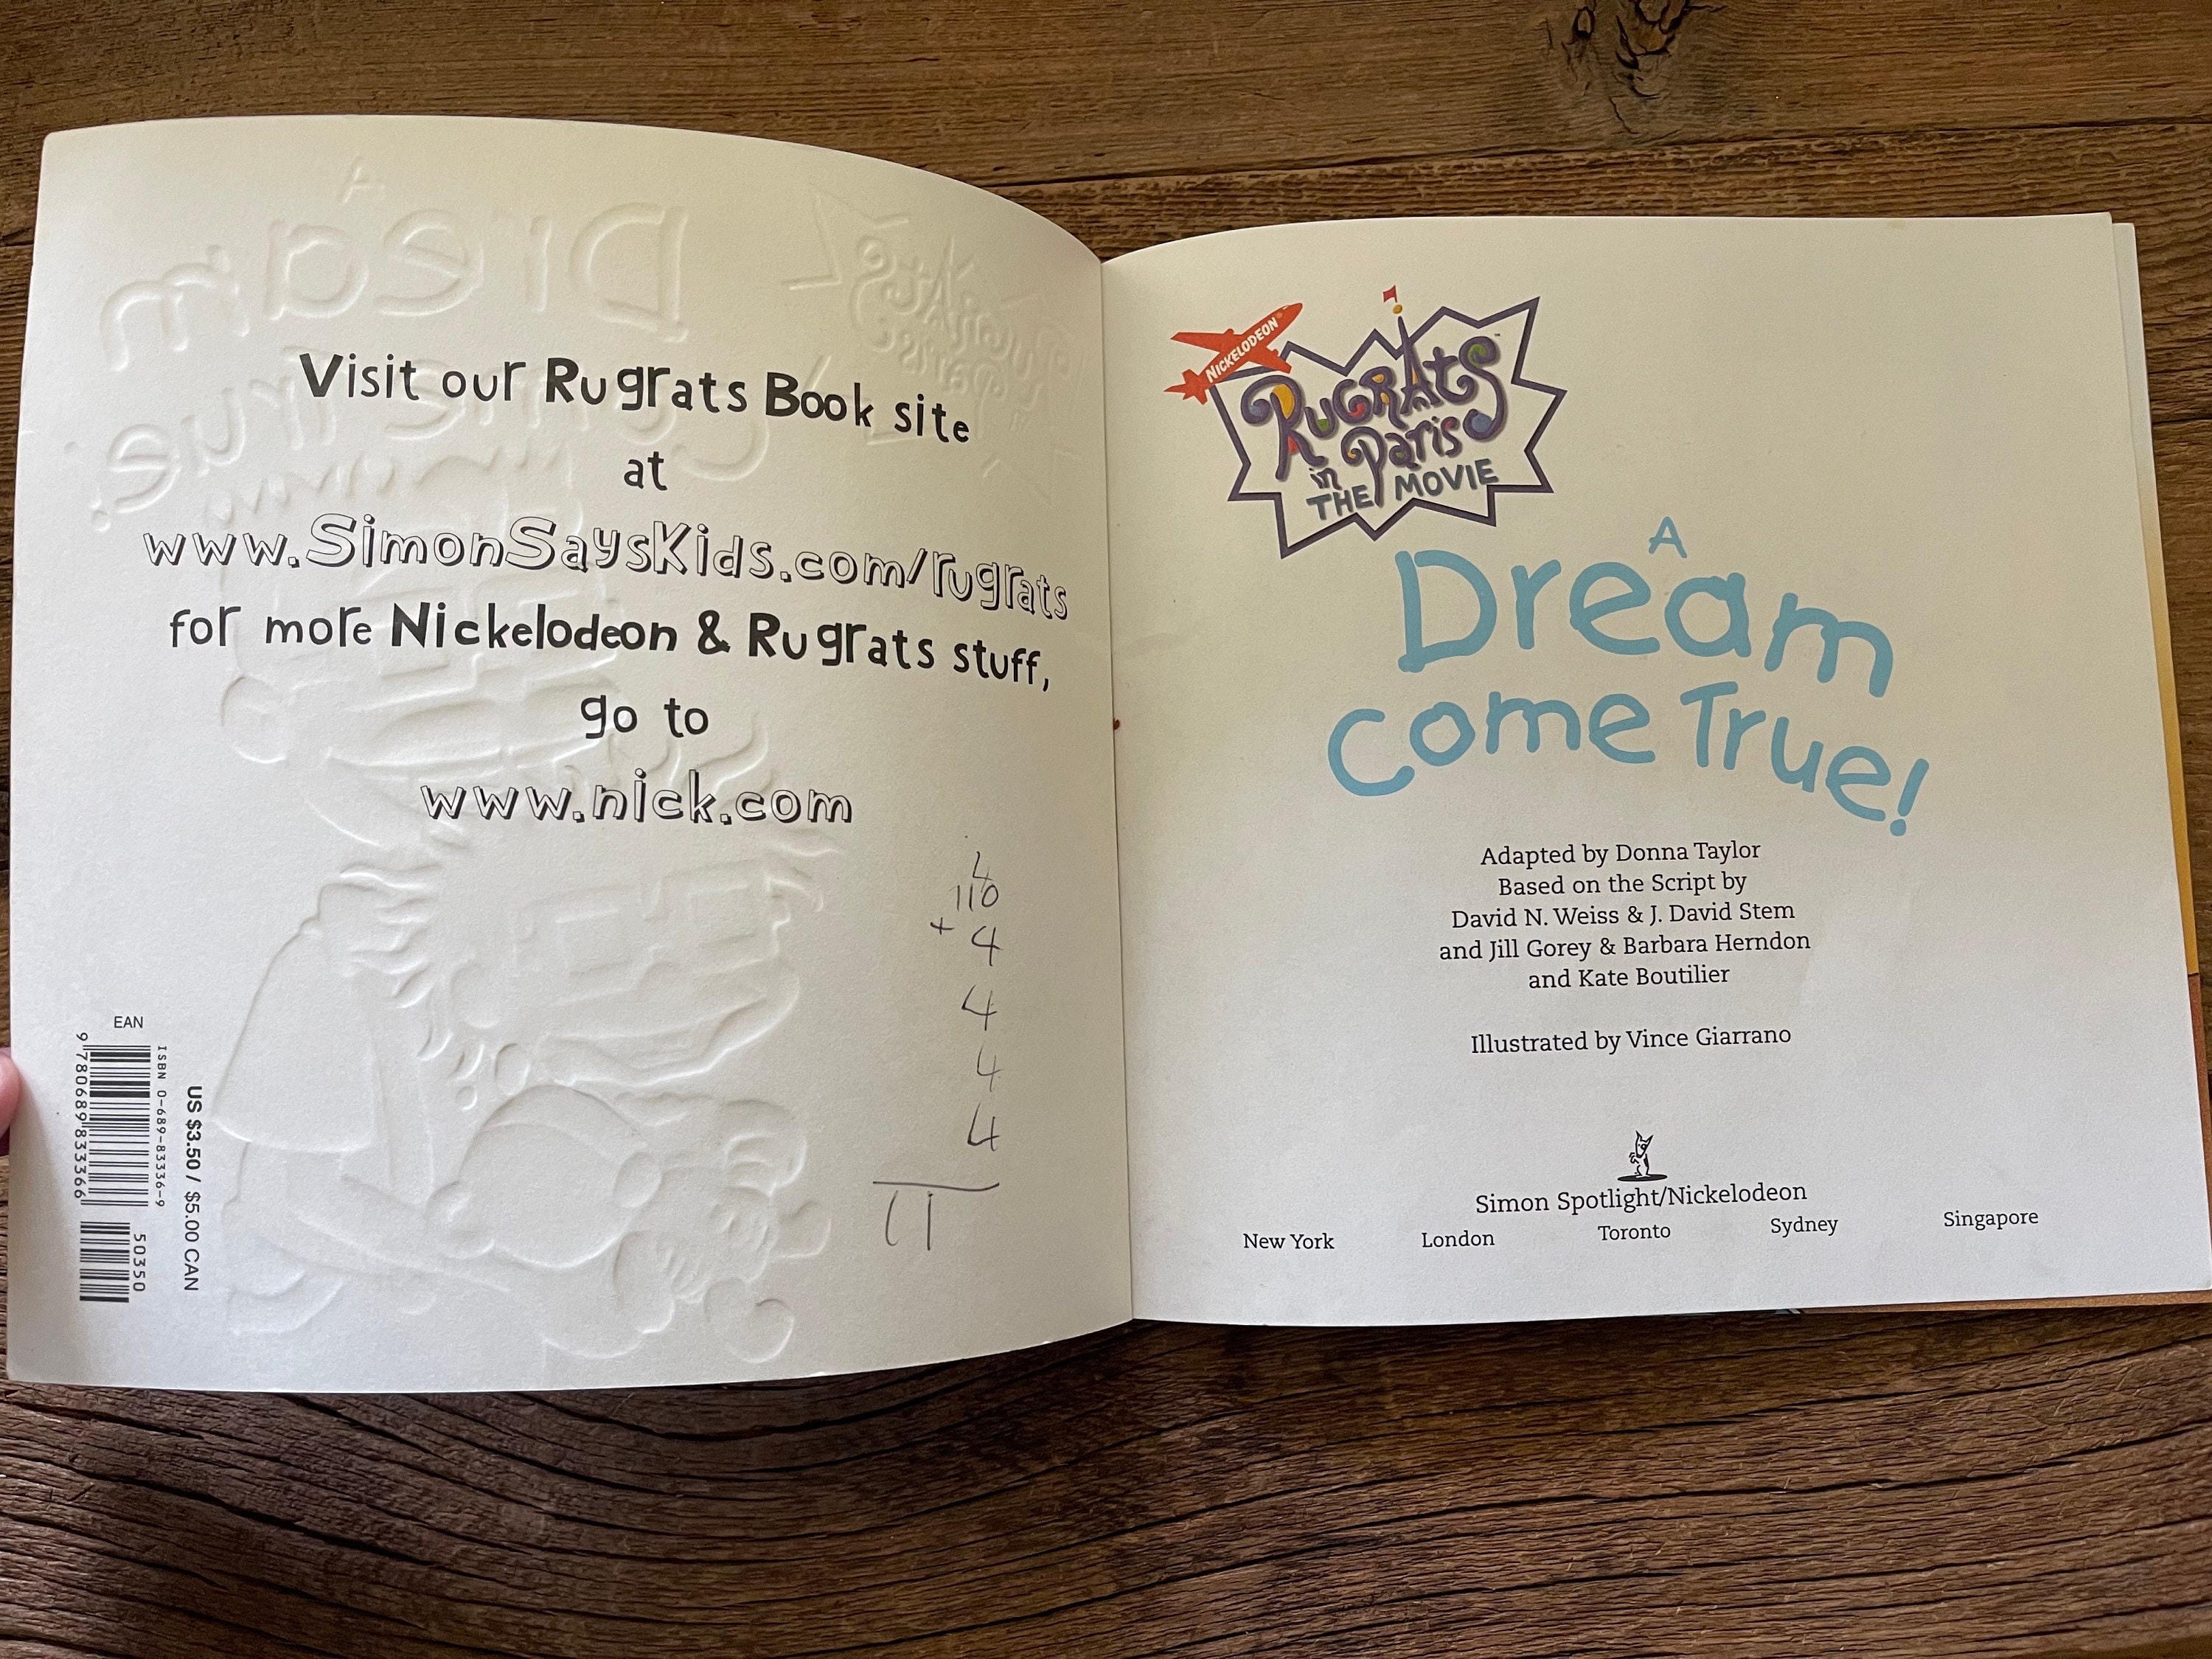 A
Dream
Come True!
Rugrats
in Paris
Visit our Rugrats Book site
at
www.SimonSaysKids.com/rugrats
for more Nickelodeon & Rugrats stuff,
go to
www.nick.com
4
110
+ 4
4
4
4
11
EAN
9 780689 833366
ISBN 0-689-83336-9
50350
US $3.50 / $5.00 CAN
NICKELODEON
RUGRATS
in Paris
THE MOVIE
A
Dream
Come True!
Adapted by Donna Taylor
Based on the Script by
David N. Weiss & J. David Stem
and Jill Gorey & Barbara Herndon
and Kate Boutilier
Illustrated by Vince Giarrano
Simon Spotlight/Nickelodeon
New York London Toronto Sydney Singapore